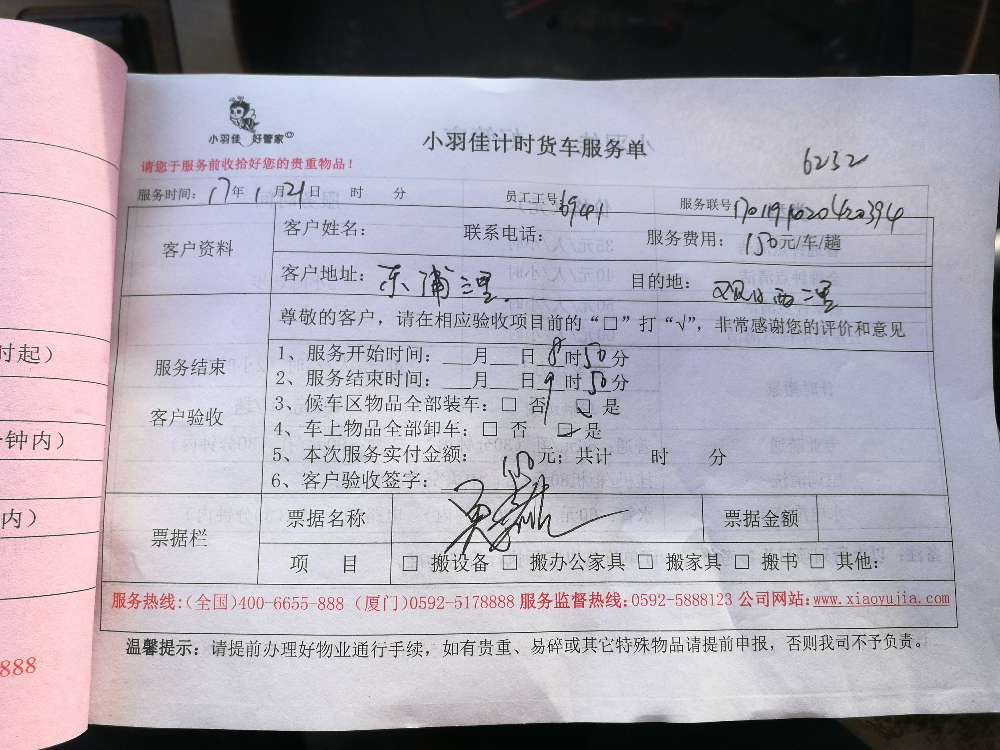 小羽佳 好管家©
小羽佳计时货车服务单
6232
请您于服务前收拾好您的贵重物品！
服务时间：17年1月21日 时 分 员工工号 服务联号
客户资料
客户姓名： 联系电话： 服务费用：150元/车/趟
客户地址：东浦三里 目的地：
服务结束
客户验收
尊敬的客户，请在相应验收项目前的“□”打“√”，非常感谢您的评价和意见
1、服务开始时间：___月___日8时50分
2、服务结束时间：___月___日9时50分
3、候车区物品全部装车：□ 否 ☑ 是
4、车上物品全部卸车：□ 否 ☑ 是
5、本次服务实付金额：150元；共计 时 分
6、客户验收签字：
票据栏
票据名称 票据金额
项 目 □ 搬设备 □ 搬办公家具 □ 搬家具 □ 搬书 □ 其他：
服务热线:(全国)400-6655-888 (厦门)0592-5178888 服务监督热线:0592-5888123 公司网站:www.xiaoyujia.com
温馨提示：请提前办理好物业通行手续，如有贵重、易碎或其它特殊物品请提前申报，否则我司不予负责。
时起）
钟内）
内）
888